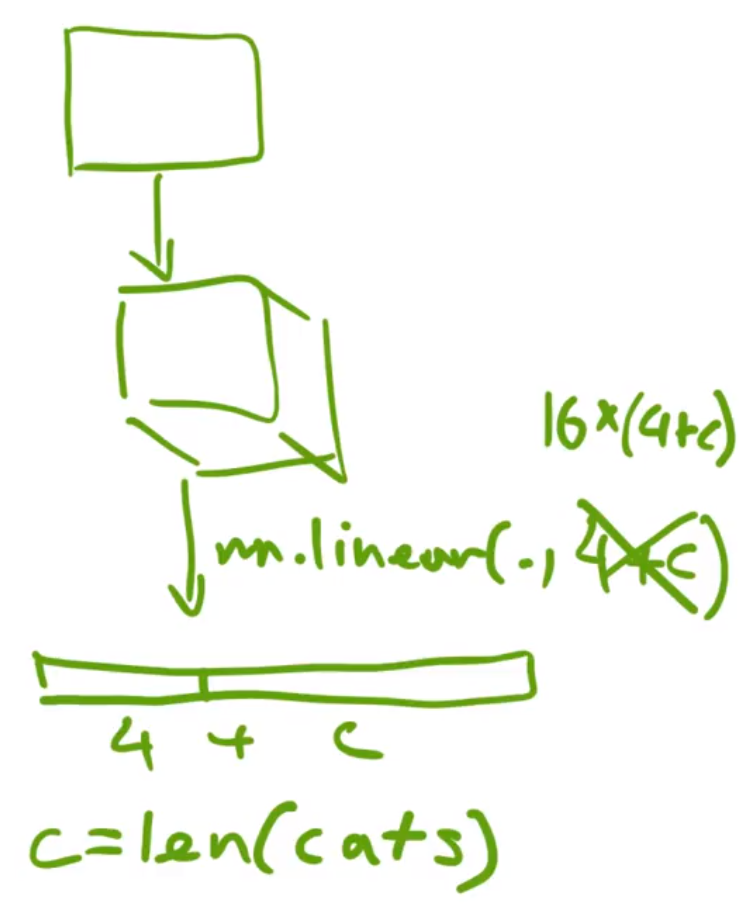 16*(4+c)
nn.linear(., 4+c)
4 + c
c=len(cats)